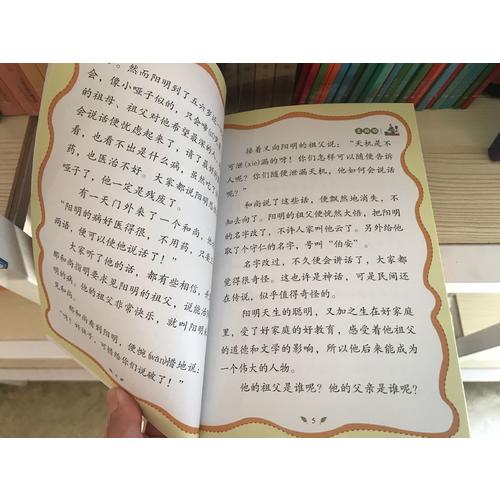 。然而阳明到了五六岁
会，像小哑子似的，只会哗
的祖母、祖父对他希望最深的
会说话便忧虑起来，请了最
看，也看不出是什么病，虽然吃了
药，也医治不好。大家都说阳明
哑子了，他一定是残废了。
有一天门外来了一个和尚，他
“阳明的病好医得很，不用药，只
两语，便可以使他说话了！”
大家听了他的话，都有些相信，
那和尚指明要求见阳明的祖父，说能
明的病。他的祖父非常快乐，就叫阳明
见和尚。
那和尚看到阳明，便惋(wǎn)惜地说：
给你们说破了！”
王阳明
接着又向阳明的祖父说：“天机是不
可泄(xiè)漏的呀！你们怎样可以随便告诉
人呢？你们随便泄漏天机，他如何会说话
呢？”
和尚说了这些话，便飘然地消失，不
知去向了。阳明的祖父便恍然大悟，把阳明
的名字改了，不许人家叫他云了。另外给他
取了个守仁的名字，号叫“伯安”。
名字改过，不久便会讲话了，大家都
觉得很奇怪。这也许是神话，可是民间还
在传说，似乎值得奇怪的。
阳明天生的聪明，又加之生在好家庭
里，受了好家庭的好教育，感受着他祖父
的道德和文学的影响，所以他后来能成为
一个伟大的人物。
他的祖父是谁呢？他的父亲是谁呢？
5